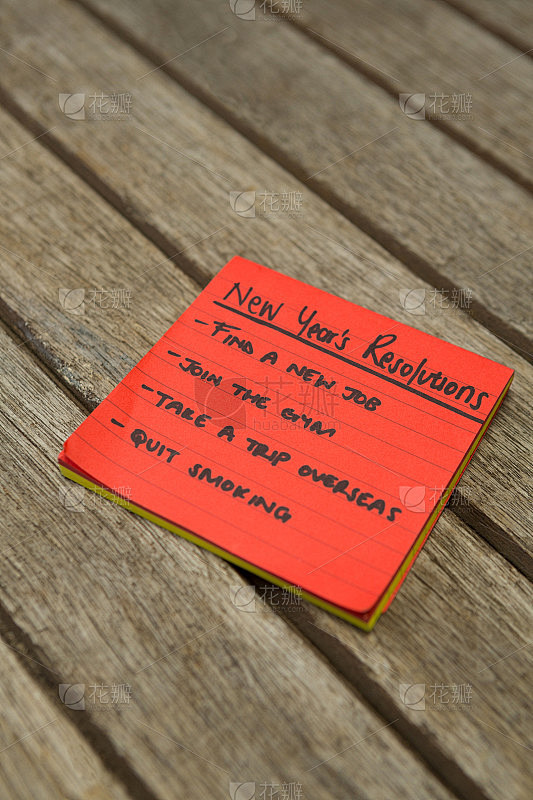 New Year's Resolutions
- FIND A NEW JOB
- JOIN THE GYM
- TAKE A TRIP OVERSEAS
- QUIT SMOKING
花瓣
花瓣
花瓣
花瓣
花瓣
花瓣
花瓣
花瓣
花瓣
花瓣
花瓣
花瓣
花瓣
花瓣